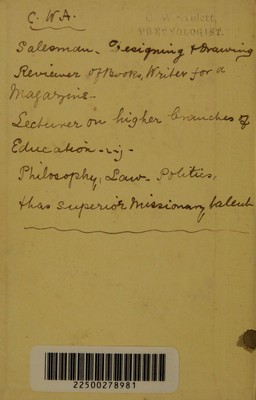 C. W. A.
PHRENOLOGIST.
Salesman. Designing & Drawing
Reviewer of Books, Writer for a
Magazine -
Lecturer on higher branches of
Education -
Philosophy, Law - Politics,
& has superior Missionary talent
22500278981